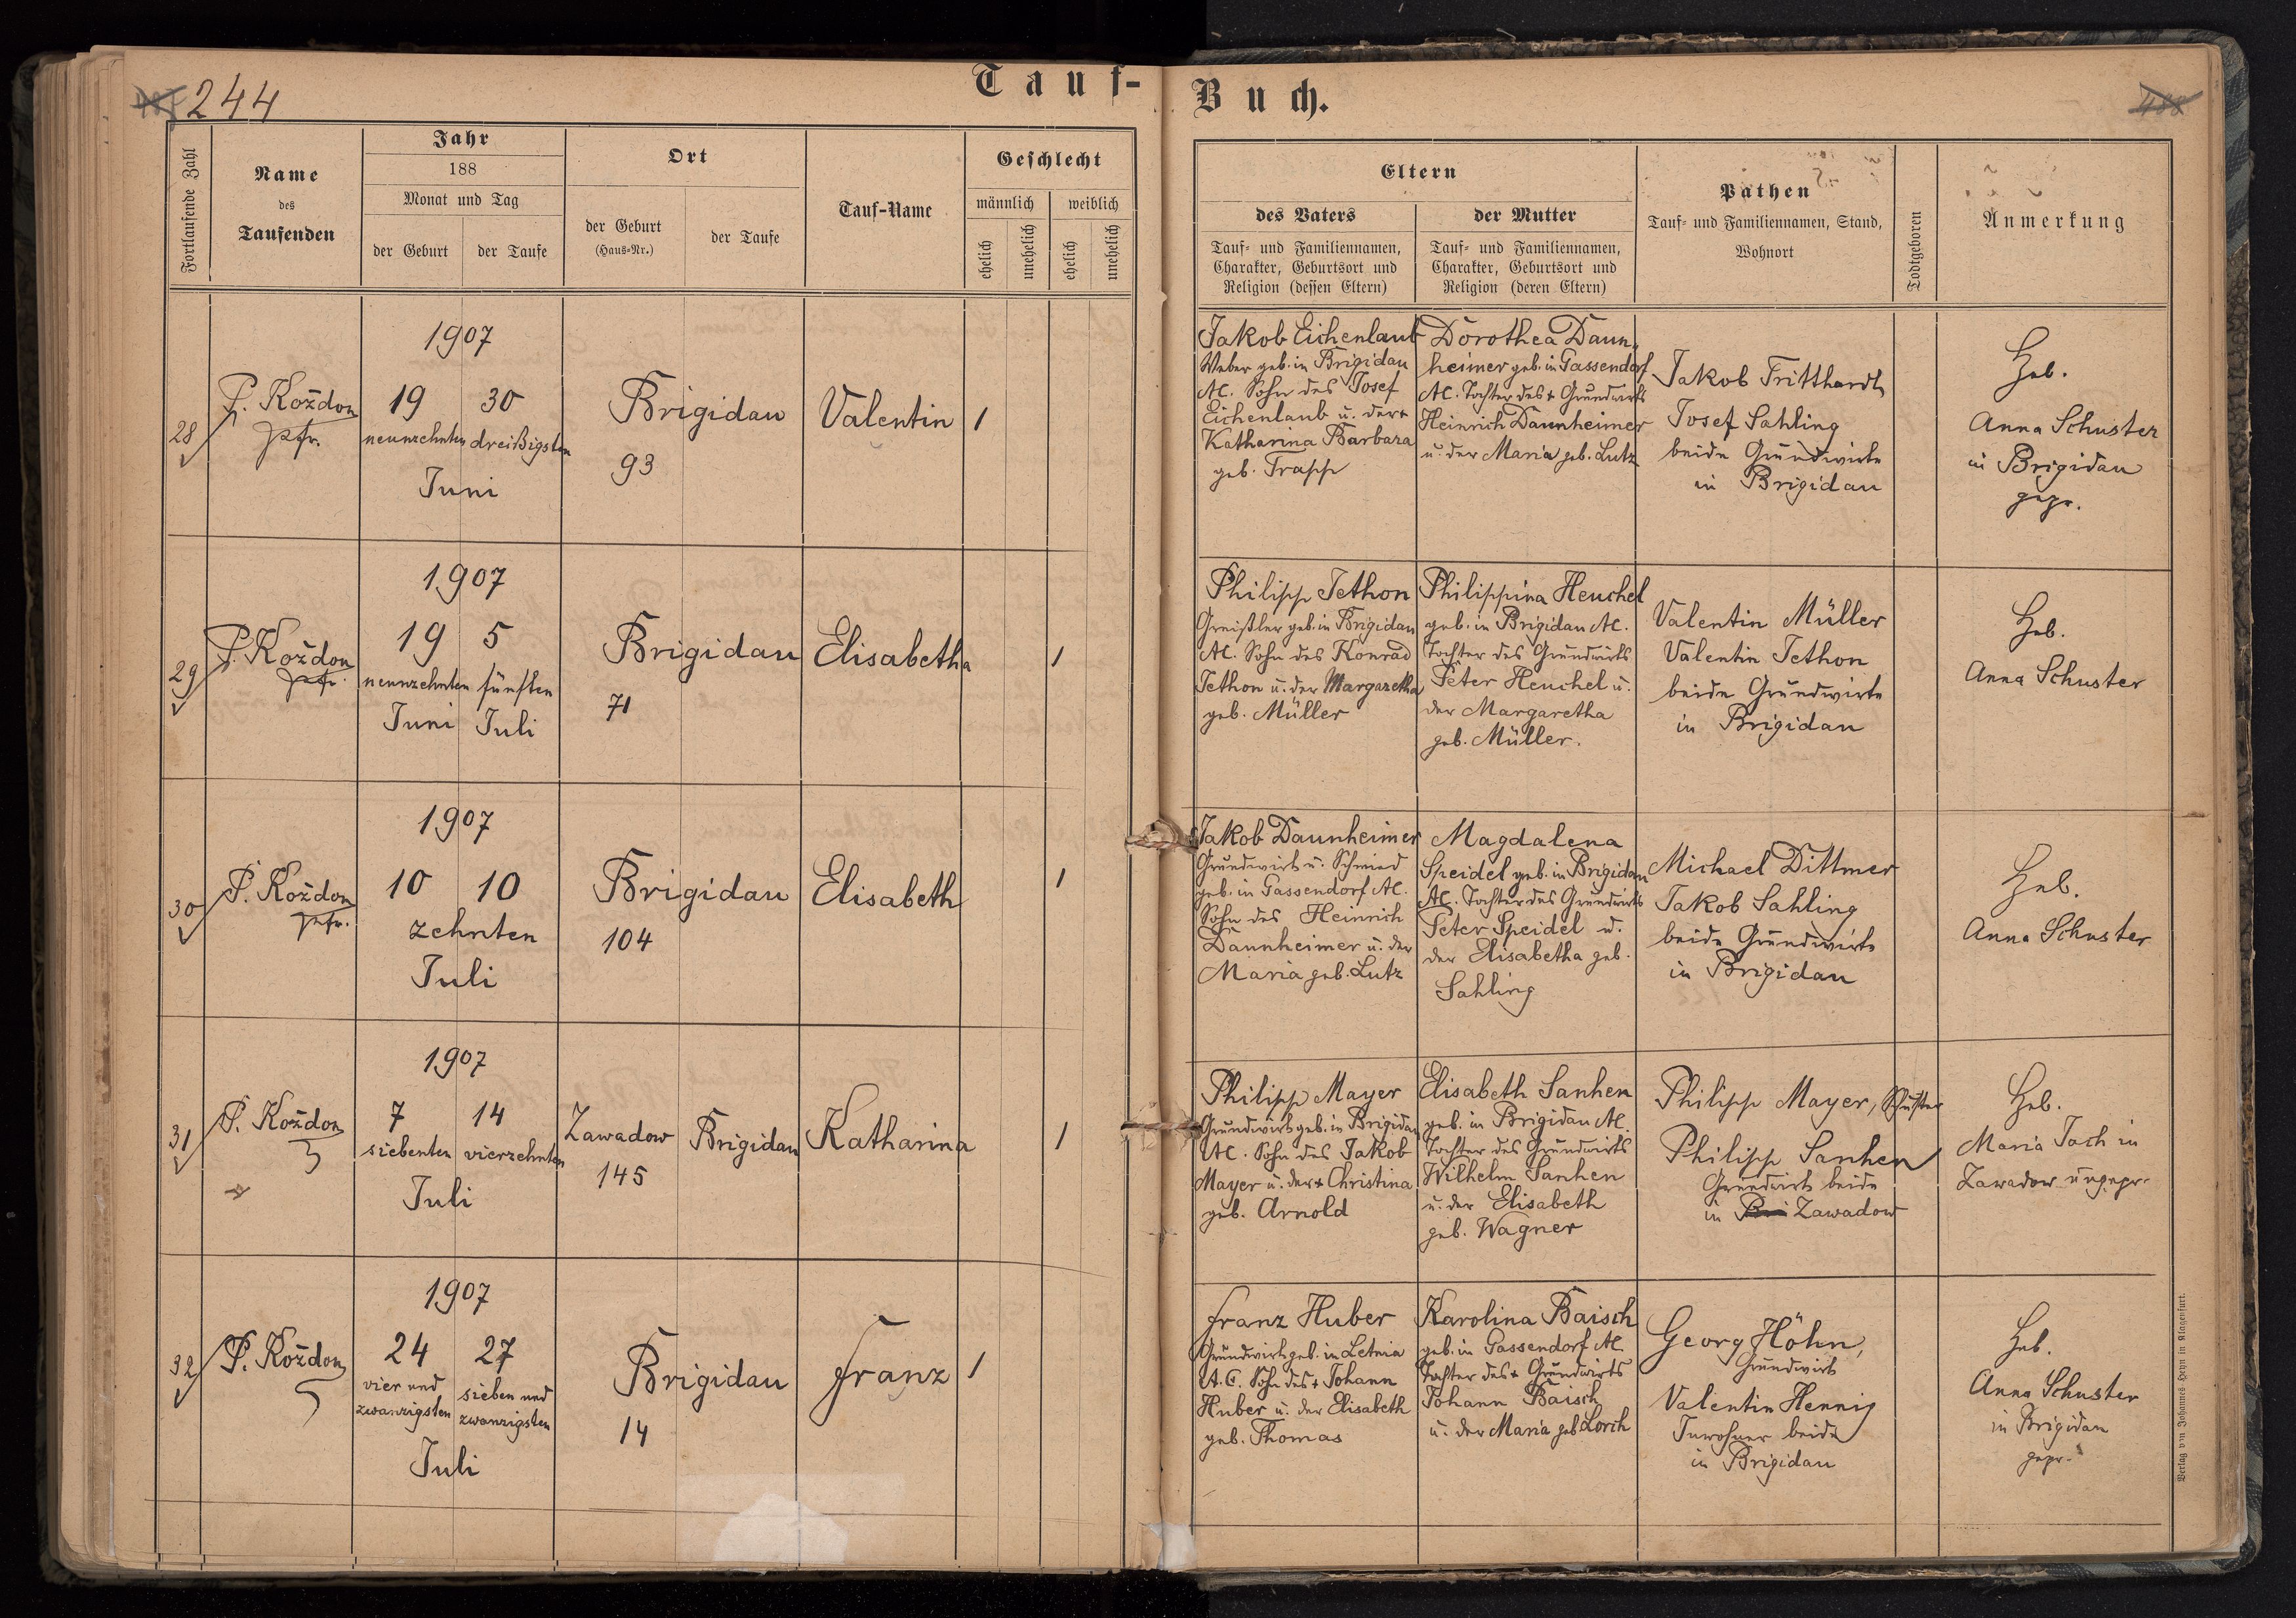 244
Tauf-
Buch.
488
Fortlaufende Zahl
Name
des
Taufenden
Jahr
188
Monat und Tag
der Geburt
der Taufe
Ort
der Geburt
(Haus-Nr.)
der Taufe
Tauf-Name
Geschlecht
männlich
weiblich
ehelich
unehelich
ehelich
unehelich
Eltern
des Vaters
Tauf- und Familiennamen,
Charakter, Geburtsort und
Religion (dessen Eltern)
der Mutter
Tauf- und Familiennamen,
Charakter, Geburtsort und
Religion (deren Eltern)
Pathen
Tauf- und Familiennamen, Stand,
Wohnort
Todtgeboren
Anmerkung
28
P. Koždon
pfr.
1907
19 30
neunzehnten dreißigsten
Juni
Brigidau
93
Valentin
1
Jakob Eichenlaub
Weber geb. in Brigidau
AC. Sohn des Josef
Eichenlaub u. der +
Katharina Barbara
geb. Trapp
Dorothea Daun„
heimer geb. in Gassendorf
AC. Tochter des + Grundwirts
Heinrich Daunheimer
u. der Maria geb. Lutz
Jakob Fritthardt
Josef Sahling
beide Grundwirte
in Brigidau
Heb.
Anna Schuster
in Brigidau
gepr.
29
P. Koždon
pfr.
1907
19 5
neunzehnten fünften
Juni Juli
Brigidau
71
Elisabetha
1
Philipp Jethon
Greißler geb. in Brigidau
AC. Sohn des Konrad
Jethon u. der Margaretha
geb. Müller
Philippina Heuchel
geb. in Brigidau AC.
Tochter des Grundwirts
Peter Heuchel u.
der Margaretha
geb. Müller.
Valentin Müller
Valentin Jethon
beide Grundwirte
in Brigidau
Heb.
Anna Schuster
30
P. Koždon
pfr.
1907
10 10
zehnten
Juli
Brigidau
104
Elisabeth
1
Jakob Daunheimer
Grundwirt u. Schmied
geb. in Gassendorf AC.
Sohn des Heinrich
Daunheimer u. der
Maria geb. Lutz
Magdalena
Speidel geb. in Brigidau
AC. Tochter des Grundwirts
Peter Speidel u.
der Elisabetha geb.
Sahling
Michael Dittmer
Jakob Sahling
beide Grundwirte
in Brigidau
Heb.
Anna Schuster
31
P. Koždon
1907
7 14
siebenten vierzehnten
Juli
Zawadow
145
Brigidau
Katharina
1
Philipp Mayer
Grundwirt geb. in Brigidau
AC. Sohn des Jakob
Mayer u. der + Christina
geb. Arnold
Elisabeth Sanhen
geb. in Brigidau AC.
Tochter des Grundwirts
Wilhelm Sanhen
u. der Elisabeth
geb. Wagner
Philipp Mayer, Schuster
Philipp Sanhen
Grundwirt beide
in Bri Zawadow
Heb.
Maria Jach in
Zawadow ungepr.
32
P. Koždon
1907
24 27
vier und sieben und
zwanzigsten zwanzigsten
Juli
Brigidau
14
Franz
1
Franz Huber
Grundwirt geb. in Letnia
A.C. Sohn des + Johann
Huber u. der Elisabeth
geb. Thomas
Karolina Baisch
geb. in Gassendorf AC.
Tochter des + Grundwirts
Johann Baisch
u. der Maria geb Lorch
Georg Höhn,
Grundwirt
Valentin Hennig
Inwohner beide
in Brigidau
Heb.
Anna Schuster
in Brigidau
gepr.
Verlag von Johannes Heyn in Klagenfurt.